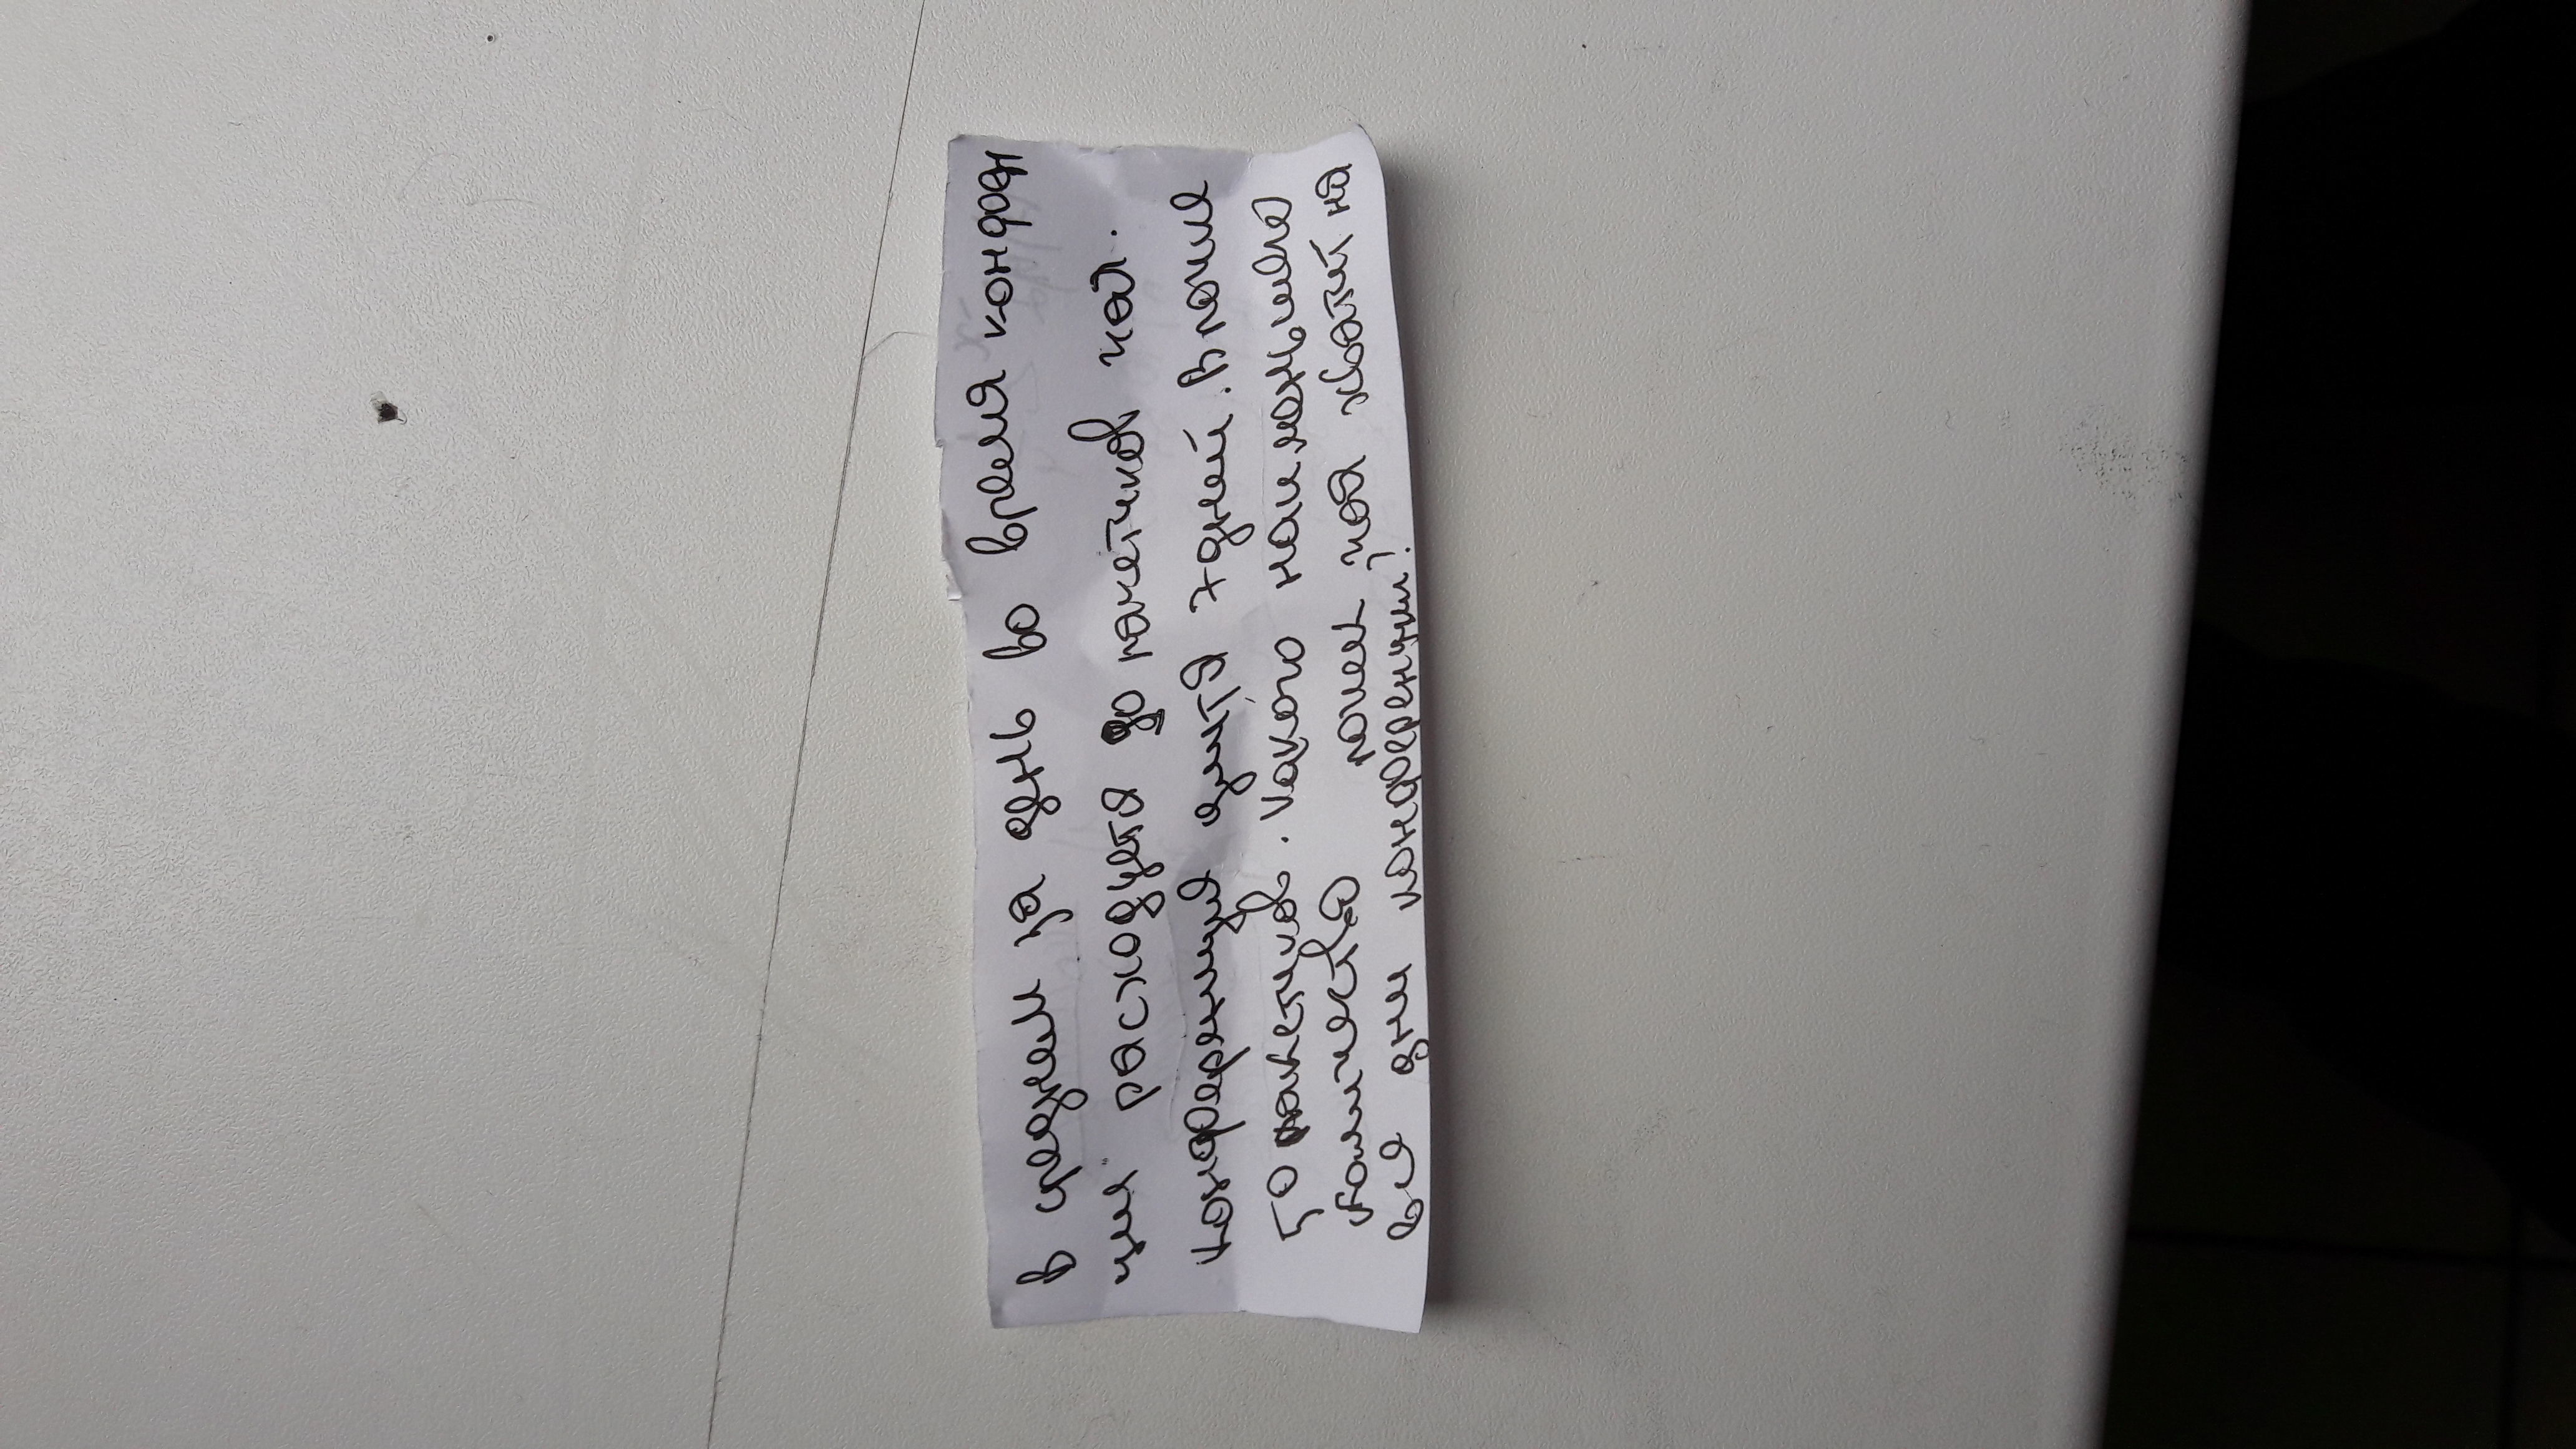 В среднем за день во время конферен
ции расходуетя 90 пакетиков чая.
Конференция длитя 7 дней. В пачке
50 пакетиков. Какого наименьшего
количества пачек чая хватит на
все дни конференции?